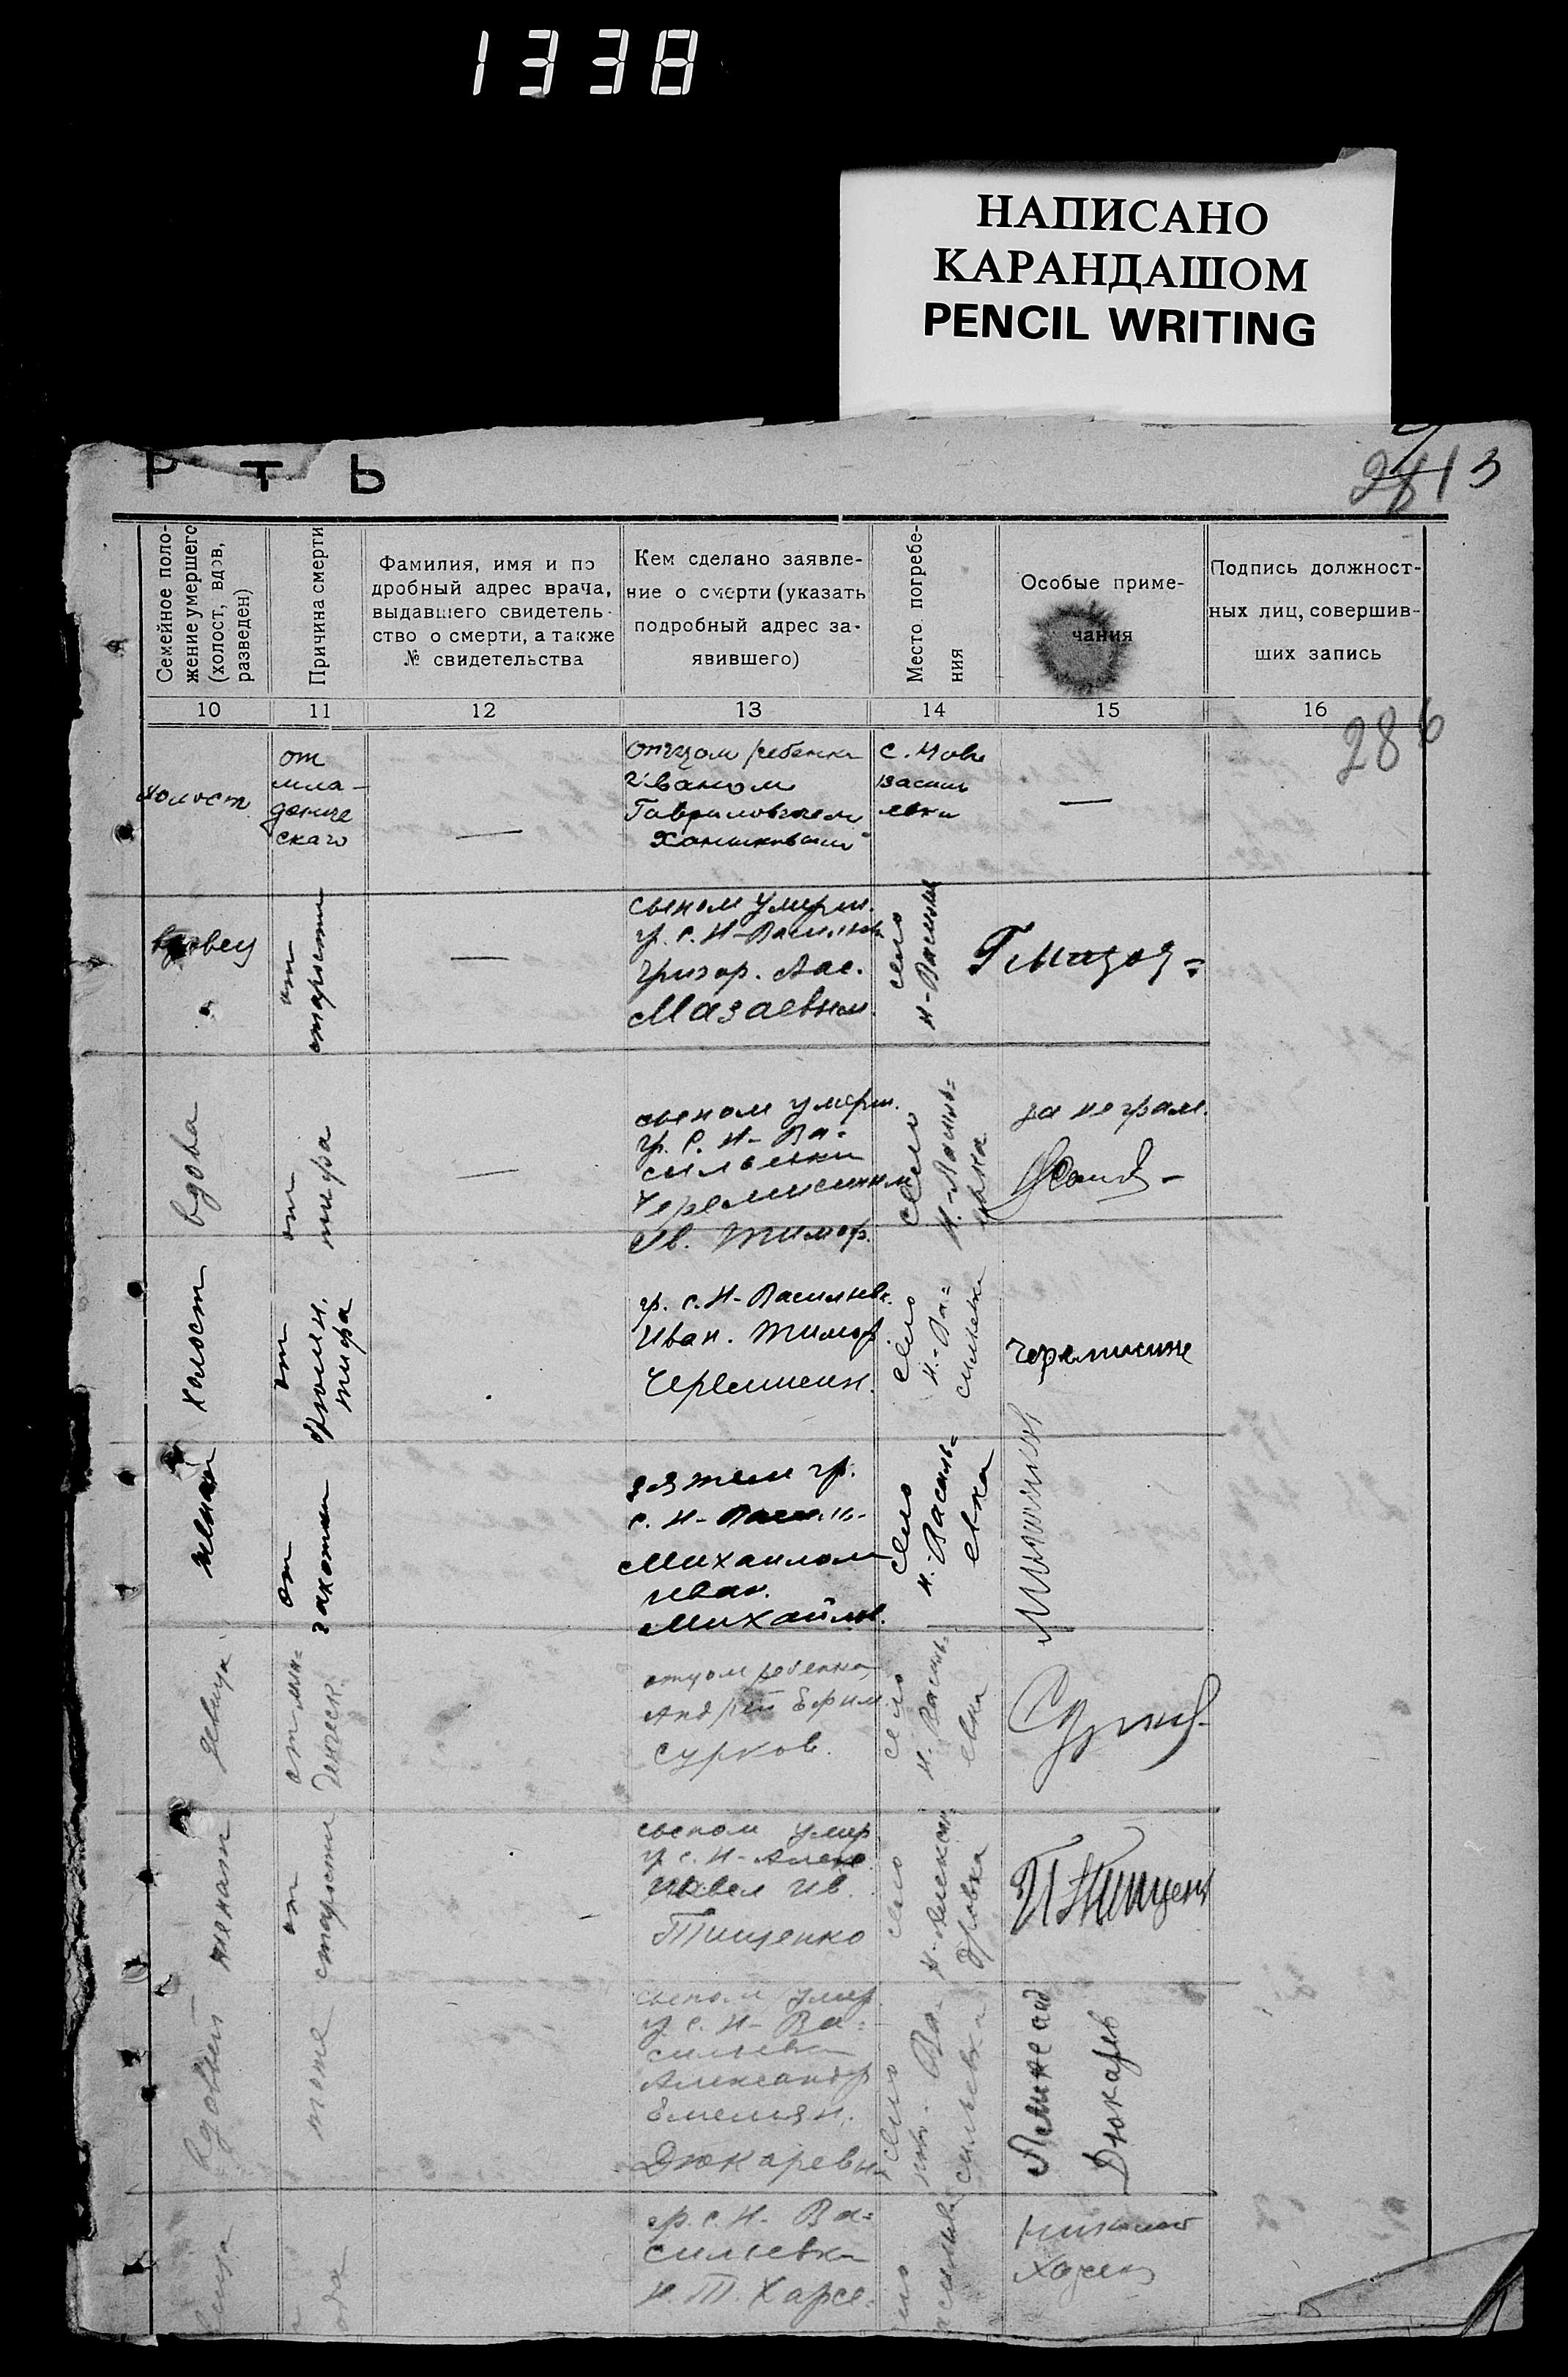 1338
НАПИСАНО
КАРАНДАШОМ
PENCIL WRITING
Р Т Ь
13
Семейное поло-
жение умершего
(холост, вдов,
разведен)
Причина смерти
Фамилия, имя и по
дробный адрес врача,
выдавшего свидетель-
ство о смерти, а также
№ свидетельства
Кем сделано заявле-
ние о смерти (указать
подробный адрес за-
явившего)
Место погребе-
ния
Особые приме-
чания
Подпись должност-
ных лиц, совершив-
ших запись
10 11 12 13 14 15 16
286
холост
от
мла-
денче
скаго
—
Отцом ребенка
Иваном
Гавриловичем
с. Ново
Василь
евки
—
вдовец
от
старости
—
сыном умерш.
гр. с. Н-Васильев
Григор. Вас.
Мазаевым
село
Н-Васильев
вдова
от
тифа
—
сыном умерш.
гр. с. Н-Ва-
сильевки
Черемисиным
Ив. Тимоф.
село
Н.-Василь=
евка
за неграм.
холост
от
тифа
гр. с. Н-Васильевк.
Иван. Тимоф.
Черемисин.
село
Н.-Ва=
сильевка
женат
от
чахотки
зятем гр.
с. Н-Василь-
Михаилом
Иван.
Михайлов.
село
Н.-Василь=
евка
девица
от мла=
денческ.
отцом ребенка
Андрей Ефим.
Сурков.
село
Н.-Василь=
евка
женат
от
старости
сыном умер
гр. с. Н-Алекс
Павел Ив.
Тищенко
село
Н-Алексан
дровка
вдовый
тоже
сыном умер
гр. с. Н-Ва=
сильевка
Александр
Емельян.
Дюкаревым
село
Ва-
сильевка
Дюкарев
гр. с. Н- Ва=
сильевки
Н. Т. Харсе=